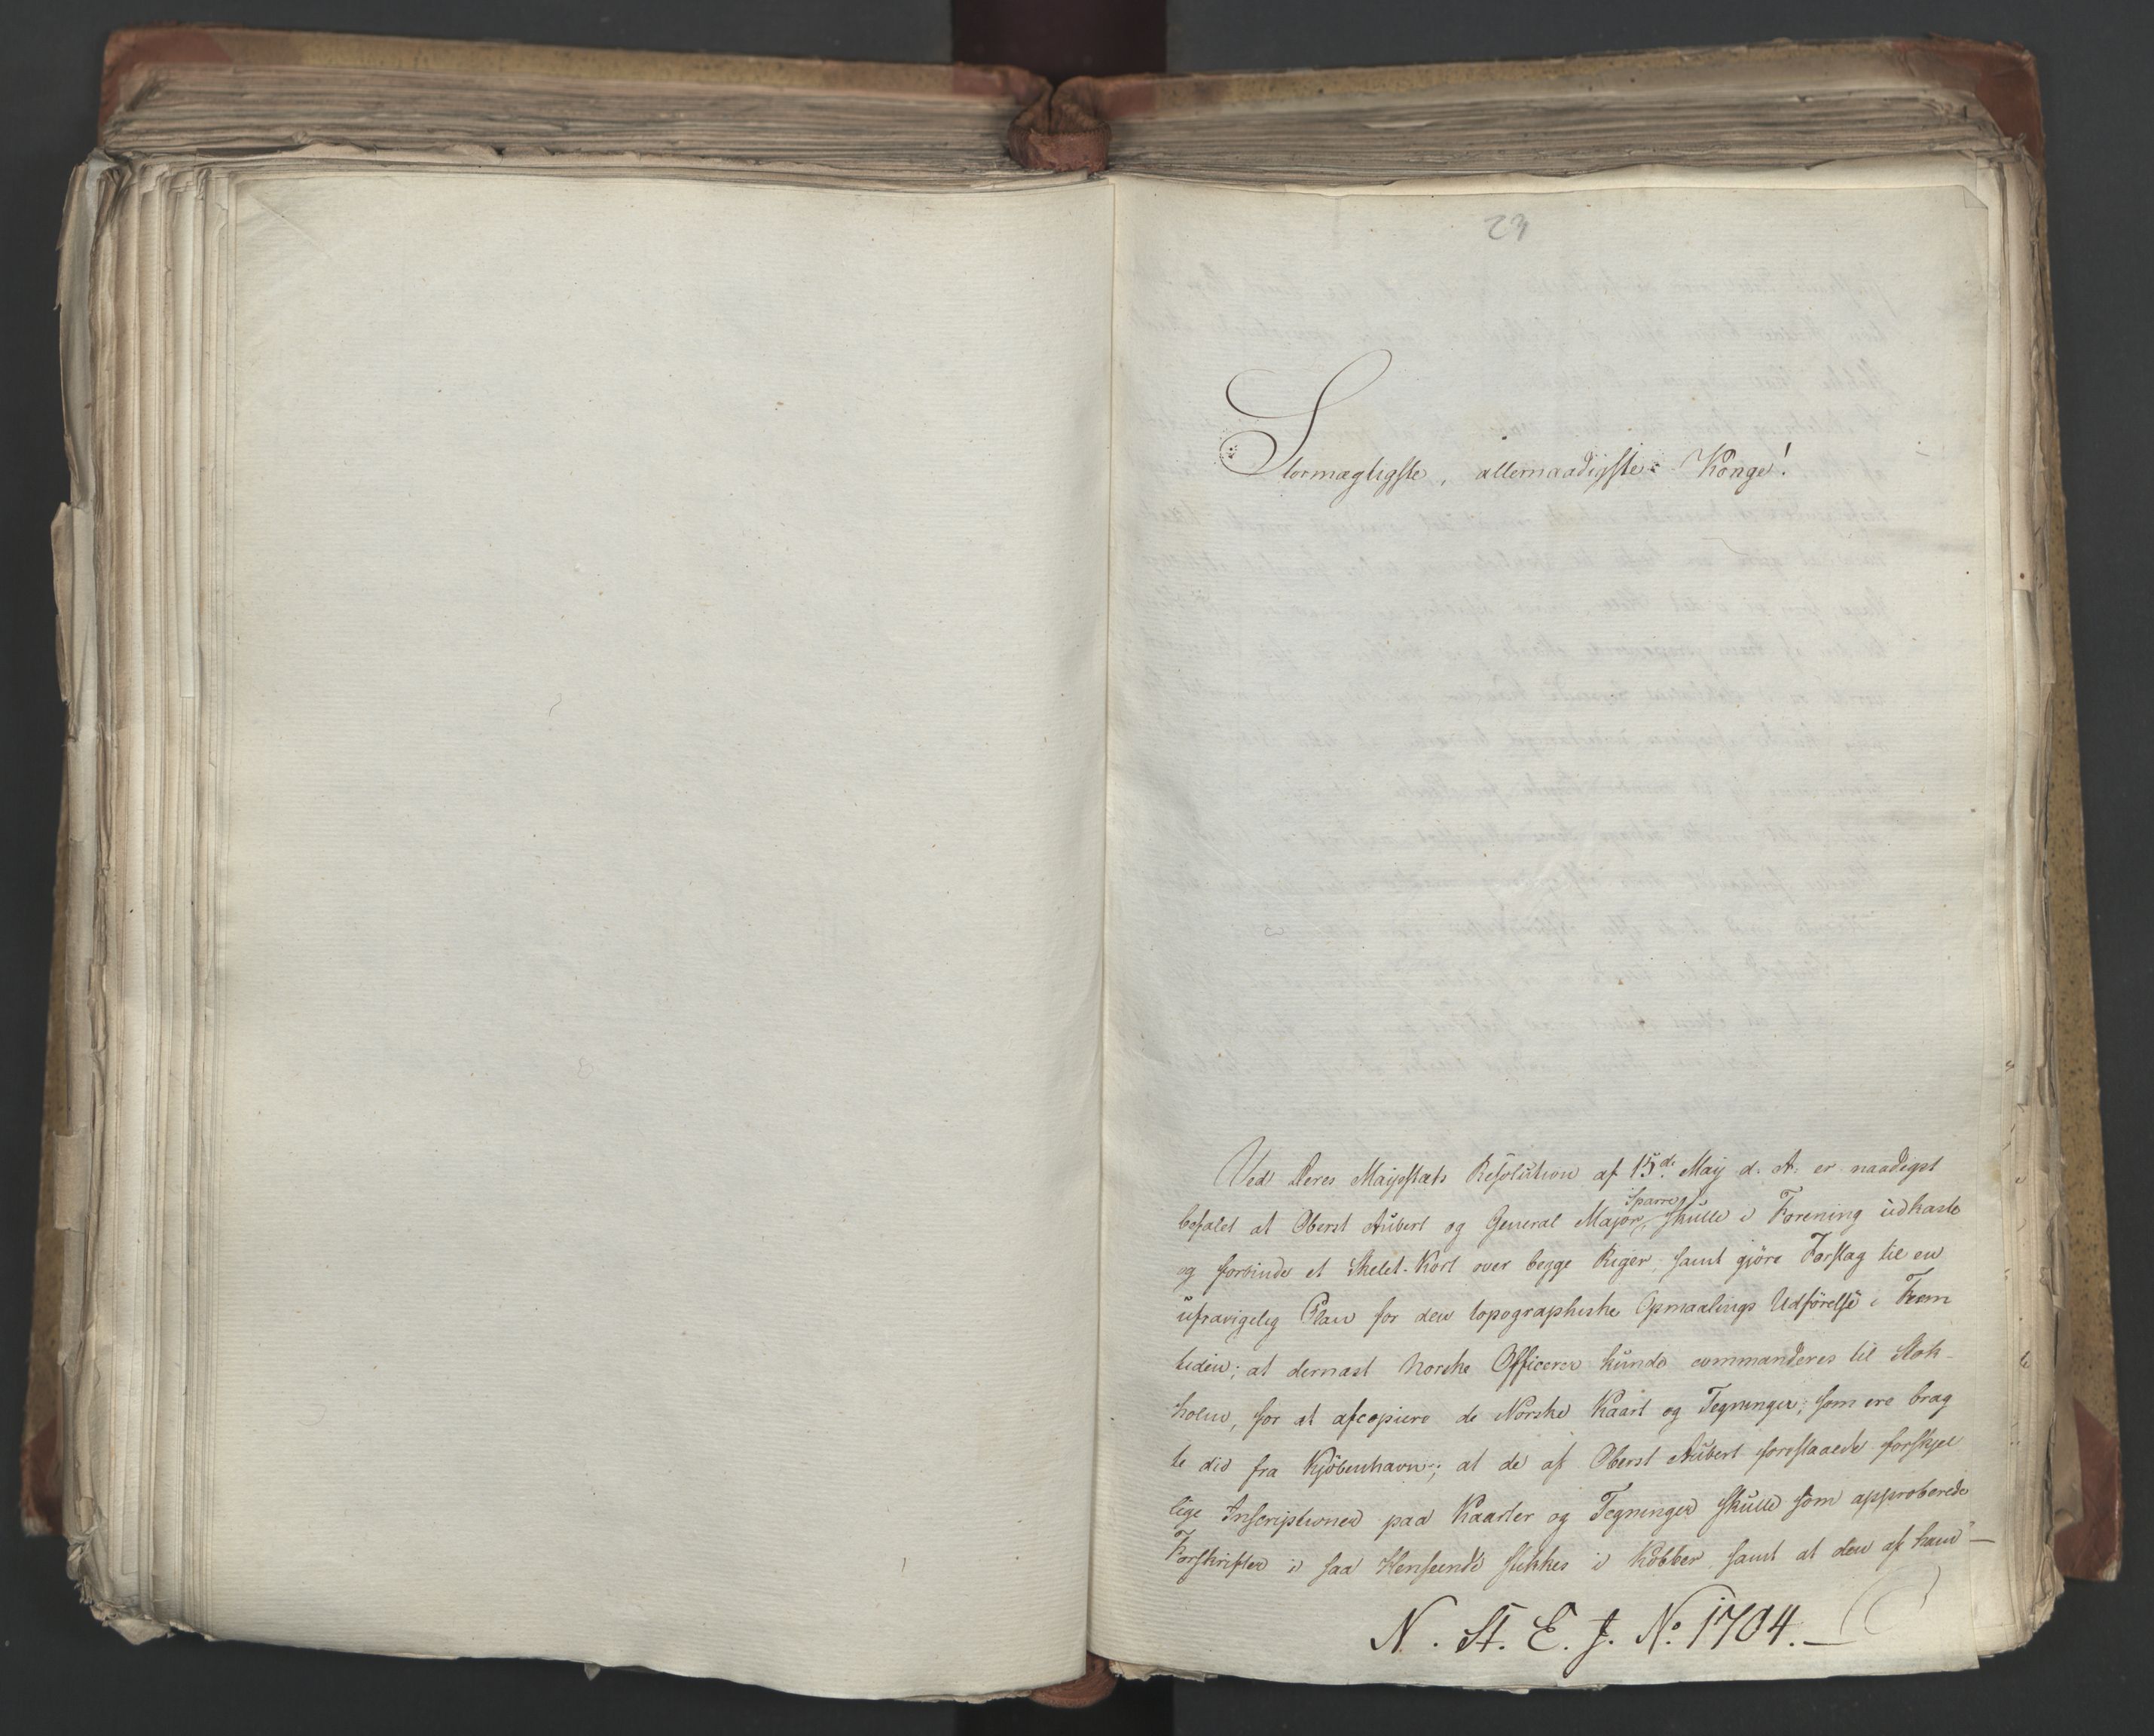 23
Stormægtigste, allernaadigste Konge!
Ved Deres Majestæts Resolution af 15de Maij d. A. er naadigst
befalet at Oberst Aubert og General Major Sparre skulle i Forening udkaste
og forbinde et Skelet-Kort over begge Riger, samt gjöre Forslag til en
ufravigelig Plan for den topographiske Opmaalings Udförelse i Frem
tiden; at dernæst Norske Officerer kunde commanderes til Stok-
holm, for at afcopiere de Norske Kaart og Tegninger, som ere brag
te did fra Kjöbenhavn; at de af Oberst Aubert foreslaaede forskjel
lige Inscriptioner paa Kaarter og Tegninger skulle som approberede
Forskrifter i saa Henseende stikkes i Kobber, samt at den af ham
N. St. E. J. No. 1704.